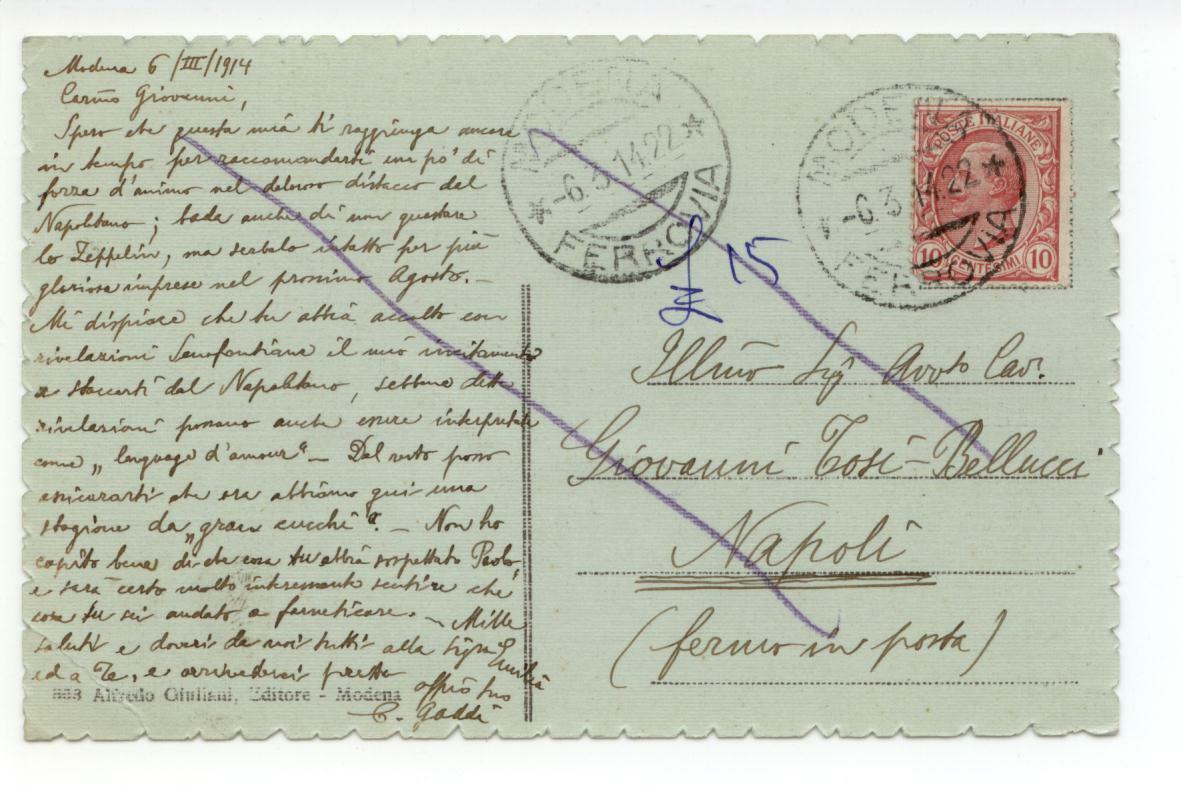 Modena 6/III/1914
Carmo Giovanni,
Spero che questa mia ti raggiunga ancora
in tempo per raccomandarti un po' di
forza d'animo nel doloroso distacco dal
Napoletano; bada anche di non guastare
lo Zeppelin, ma serbalo intatto per più
gloriose imprese nel prossimo Agosto. —
Mi dispiace che tu abbia accolto con
rivelazioni Senofontiane il mio incitamento
a staccarti dal Napoletano, sebbene dette
rivelazioni possano anche essere interpretate
come „language d'amour" — Del resto posso
assicurarti che ora abbiamo qui una
stagione da „gran cucchi". — Non ho
capito bene di che cosa tu abbia sospettato Paolo,
e sarà certo molto interessante sentire che
cosa tu sei andato a farneticare. — Mille
saluti e doveri da noi tutti alla Sigra Emilia
ed a Te, e arrivederci presto
affmo tuo
C. Gaddi
883 Alfredo Giuliani, Editore - Modena
MODENA
-6.3.14.22
FERROVIA
MODENA
-6.3.14.22
FERROVIA
POSTE ITALIANE
10 CENTESIMI 10
£ 15
£
Illmo Sig Avvto Cav.
Giovanni Tosi-Bellucci
Napoli
(fermo in posta)